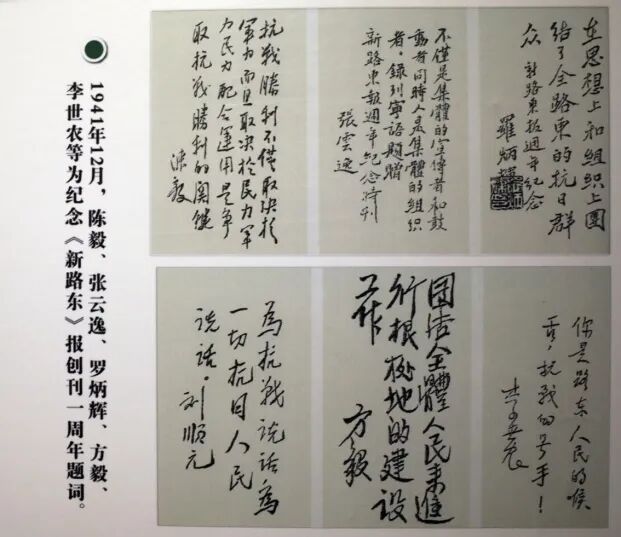 在思想上和組織上團
結了全路東的抗日群
众 新路東报週年纪念
羅炳輝
不僅是集體的宣傳者和鼓
動者同時又是集體的組織
者。錄列寧語題贈
新路東報週年紀念特刊
張雲逸
抗戰勝利不僅取決於
軍力而且取決於民力軍
力民力配合運用是爭
取抗戰勝利的関鍵
陳毅
你是路东人民的喉
舌，抗战的号手！
李世农
团结全體人民来進
行根據地的建設
工作
方毅
為抗戰説話為
一切抗日人民
説話。刘順元
1941年12月，陈毅、张云逸、罗炳辉、方毅、
李世农等为纪念《新路东》报创刊一周年题词。